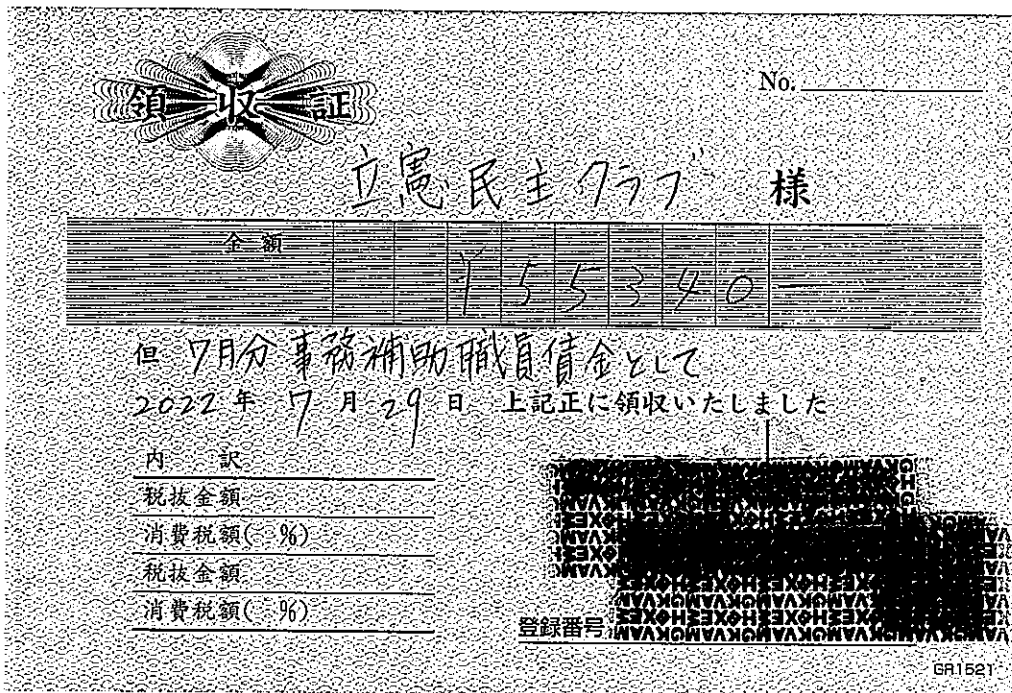 領収証
No.
立憲民主クラブ 様
金額
¥55340
但 7月分事務補助職員賃金として
2022年 7月29日 上記正に領収いたしました
内 訳
税抜金額
消費税額( %)
税抜金額
消費税額( %)
登録番号
GR1521